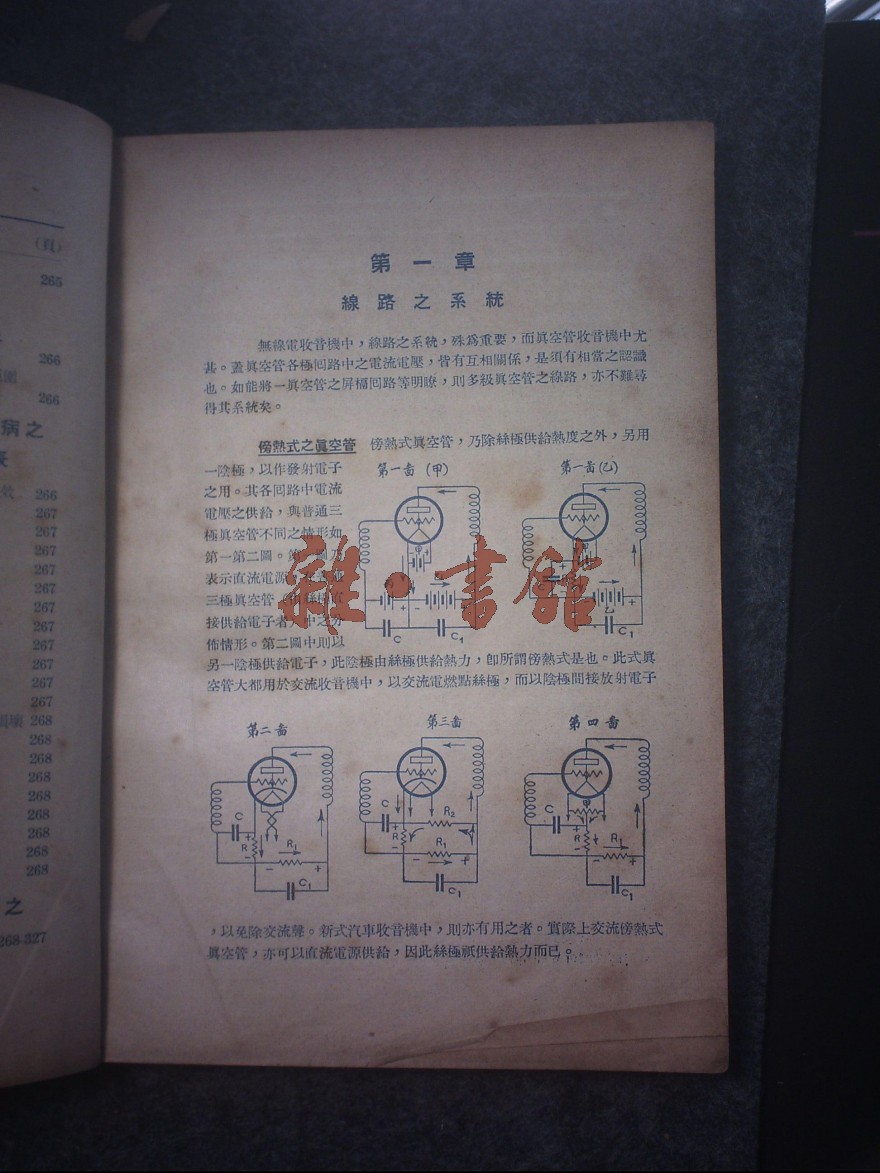 (頁)
265
266
266
病之
效。266
267
267
267
267
267
267
267
267
267
267
267
損壞 268
268
268
268
268
268
268
268
268
之
268-327
第一章
線路之系統
無線電收音機中，線路之系統，殊為重要，而眞空管收音機中尤
甚。蓋眞空管各極回路中之電流電壓，皆有互相關係，是須有相當之認識
也。如能將一眞空管之屏檲回路等明瞭，則多級眞空管之線路，亦不難尋
得其系統矣。
傍熱式之眞空管 傍熱式眞空管，乃除絲極供給熱度之外，另用
一陰極，以作發射電子
之用。其各回路中電流
電壓之供給，與普通三
極眞空管不同之情形如
第一第二圖。第
表示直流電源
三極眞空管
接供給電子者
佈情形。第二圖中則以
第一啚(甲)
第一啚(乙)
+
-
+
C
C1
-
乙
+
C1
另一陰極供給電子，此陰極由絲極供給熱力，卽所謂傍熱式是也。此式眞
空管大都用於交流收音機中，以交流電燃點絲極，而以陰極間接放射電子
第二啚
第三啚
第四啚
C
+
R
R1
-
+
C1
C
+
R2
R
R1
-
+
C1
C
+
R
R1
-
+
C1
，以免除交流聲。新式汽車收音機中，則亦有用之者。實際上交流傍熱式
眞空管，亦可以直流電源供給，因此絲極祇供給熱力而已。
雜·書館